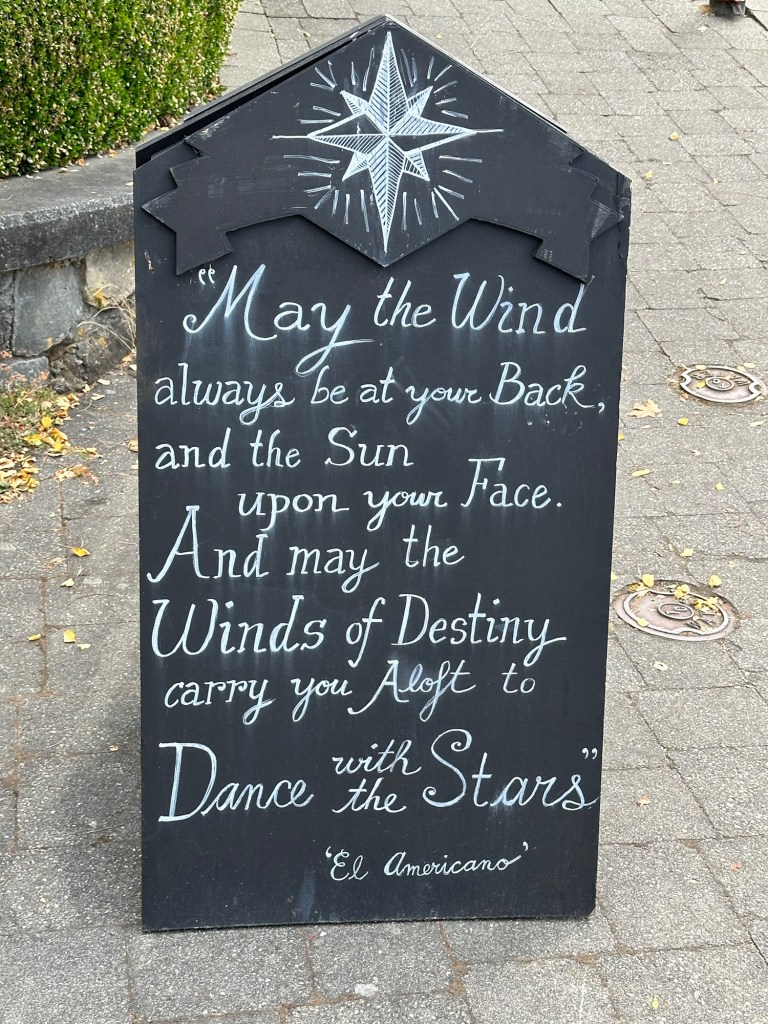 “May the Wind
always be at your Back,
and the Sun
upon your Face.
And may the
Winds of Destiny
carry you Aloft to
Dance with the Stars”
‘El Americano’